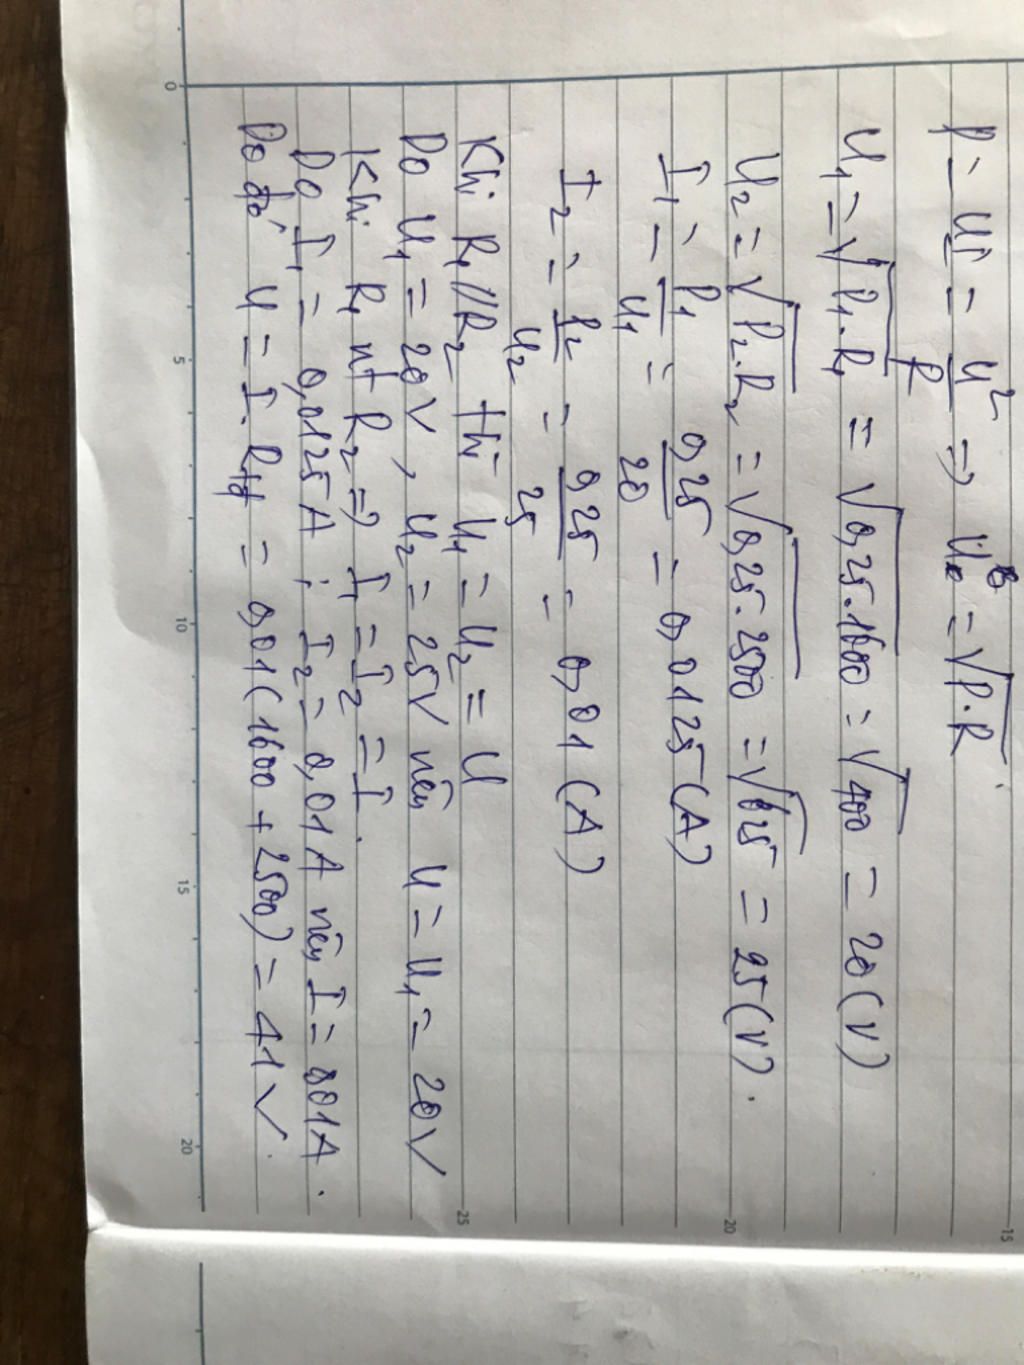 P = UI = U²/R => U = √P.R
U₁ = √P₁.R₁ = √0,25.1600 = √400 = 20 (V)
U₂ = √P₂.R₂ = √0,25.2500 = √625 = 25 (V).
I₁ = P₁/U₁ = 0,25/20 = 0,0125 (A)
I₂ = P₂/U₂ = 0,25/25 = 0,01 (A)
Khi R₁//R₂ thì U₁ = U₂ = U
Do U₁ = 20V, U₂ = 25V nên U = U₁ = 20V
Khi R₁ nt R₂ => I₁ = I₂ = I.
Do I₁ = 0,0125A; I₂ = 0,01A nên I = 0,01A.
Do đó U = I.Rtđ = 0,01(1600 + 2500) = 41V.
0
5
10
15
20
15
20
25